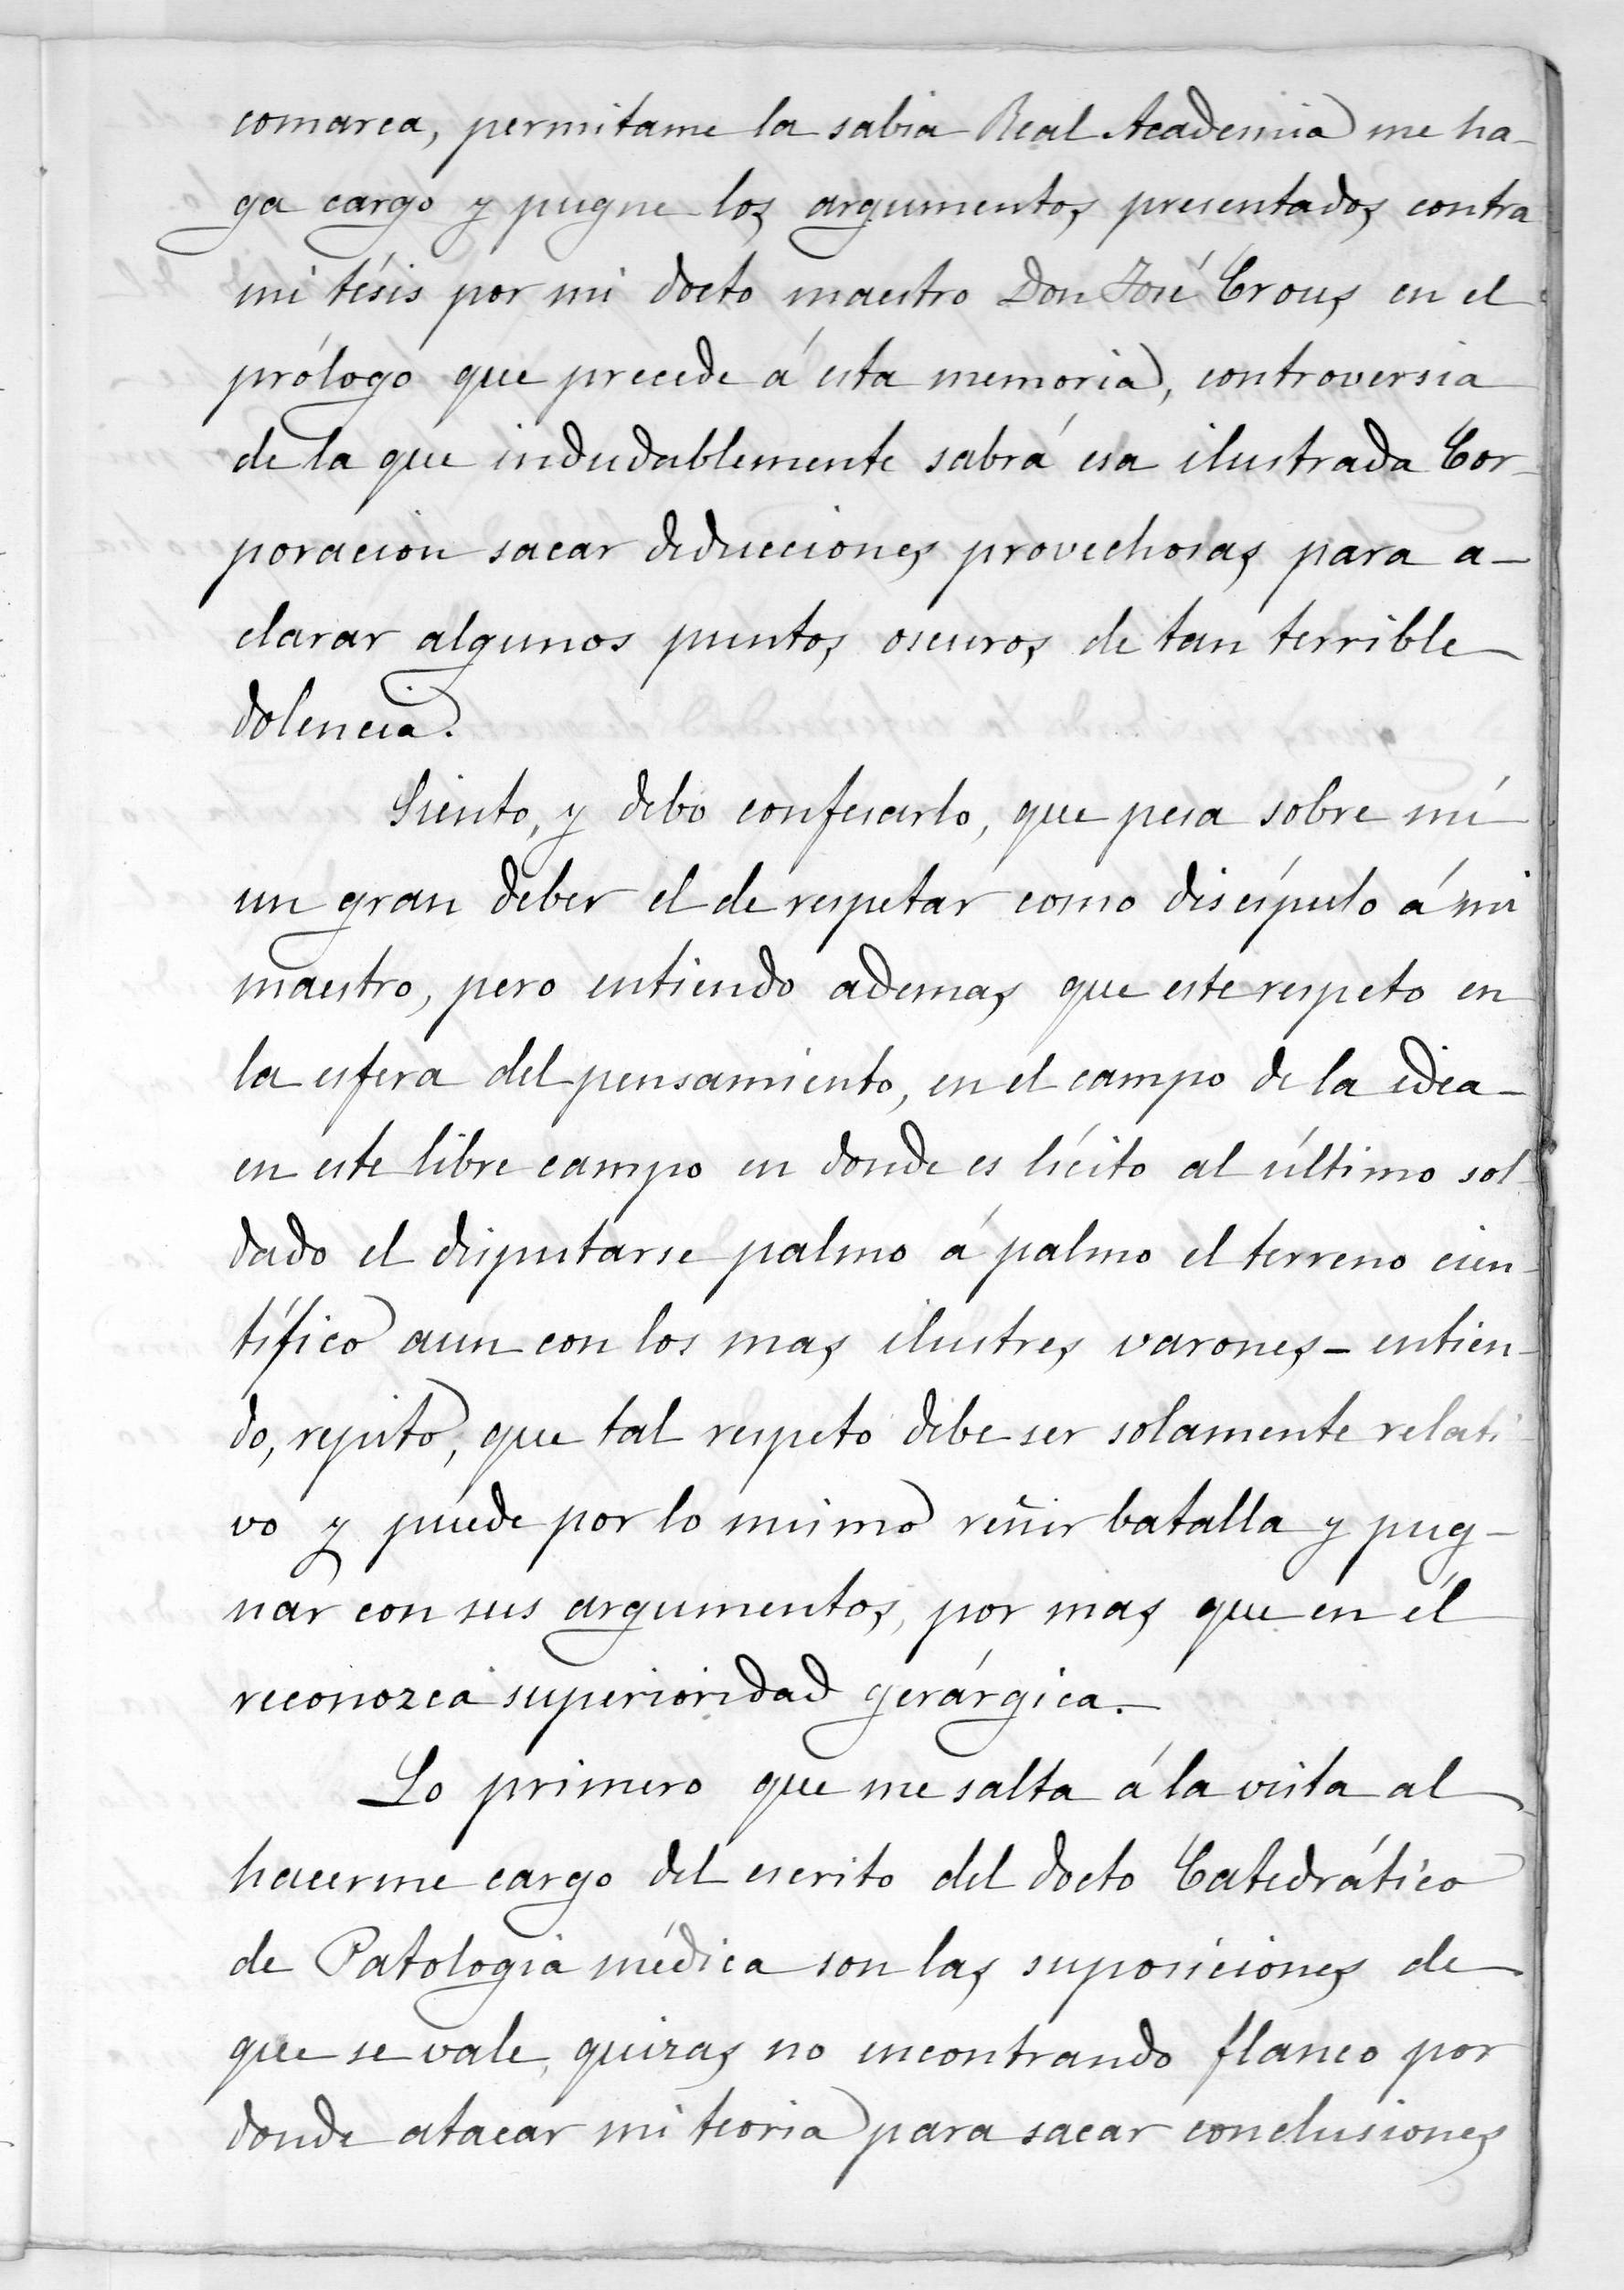 comarca, permitame la sabia Real Academia me ha-
ga cargo y pugne los argumentos presentados contra
mi tésis por mi docto maestro Don José Crous en el
prólogo que precede á esta memoria, controversia
de la que indudablemente sabrá esa ilustrada Cor-
poracion sacar deducciones provechosas para a-
clarar algunos puntos oscuros de tan terrible
dolencia.
Siento, y debo confesarlo, que pesa sobre mí
un gran deber el de respetar como discípulo á mi
maestro, pero entiendo ademas que este respeto en
la esfera del pensamiento, en el campo de la idea-
en este libre campo en donde es lícito al último sol-
dado el disputarse palmo á palmo el terreno cien-
tífico aun con los mas ilustres varones- entien-
do, repito, que tal respeto debe ser solamente relati-
vo y puede por lo mismo reñir batalla y pug-
nar con sus argumentos, por mas que en él
reconozca superioridad gerárgica.
Lo primero que me salta á la vista al
hacerme cargo del escrito del docto Catedrático
de Patologia médica son las suposiciones de
que se vale, quizas no encontrando flanco por
donde atacar mi teoria para sacar conclusiones